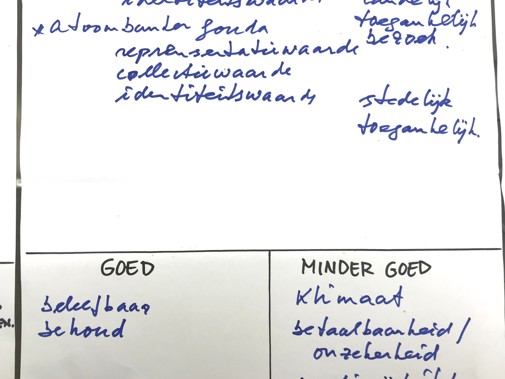 identiteitswaarde landelijk
* atoombunker gouda toegankelijk
representatiewaarde bezoek.
collectiewaarde
identiteitswaarde stedelijk
toegankelijk.
GOED MINDER GOED
beleefbaar Klimaat
behoud betaalbaarheid /
onzekerheid
EN.